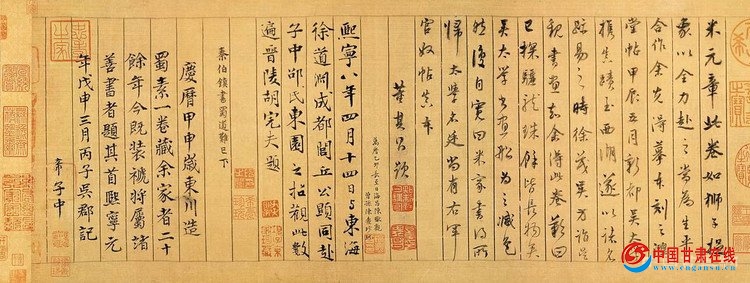 米元章此卷如獅子捉
象以全力赴之當為生平
合作余先得摹本刻之鴻
堂帖甲辰五月新都吳太學
攜真蹟至西湖遂以諸名
蹟易之時徐茂吳方詣吳
觀書畫知余得此卷歎曰
已探驪龍珠餘皆長物矣
吳太學書畫船為之減色
然後自寬曰米家書得所
歸太學名廷尚有右軍
官奴帖真本
董其昌題
熙寧八年四月十四日與東海
徐道淵成都閭丘公顯同赴
子中邵氏東園之招觀此數
遍晉陵胡完夫題
秦伯鎮書蜀道難已下
慶曆甲申歲東川造
蜀素一卷藏余家者二十
餘年今既裝褫將屬諸
善書者題其首熙寧元
年戊申三月丙子吳郡記
希子中
中国甘肃在线
www.cngansu.cn